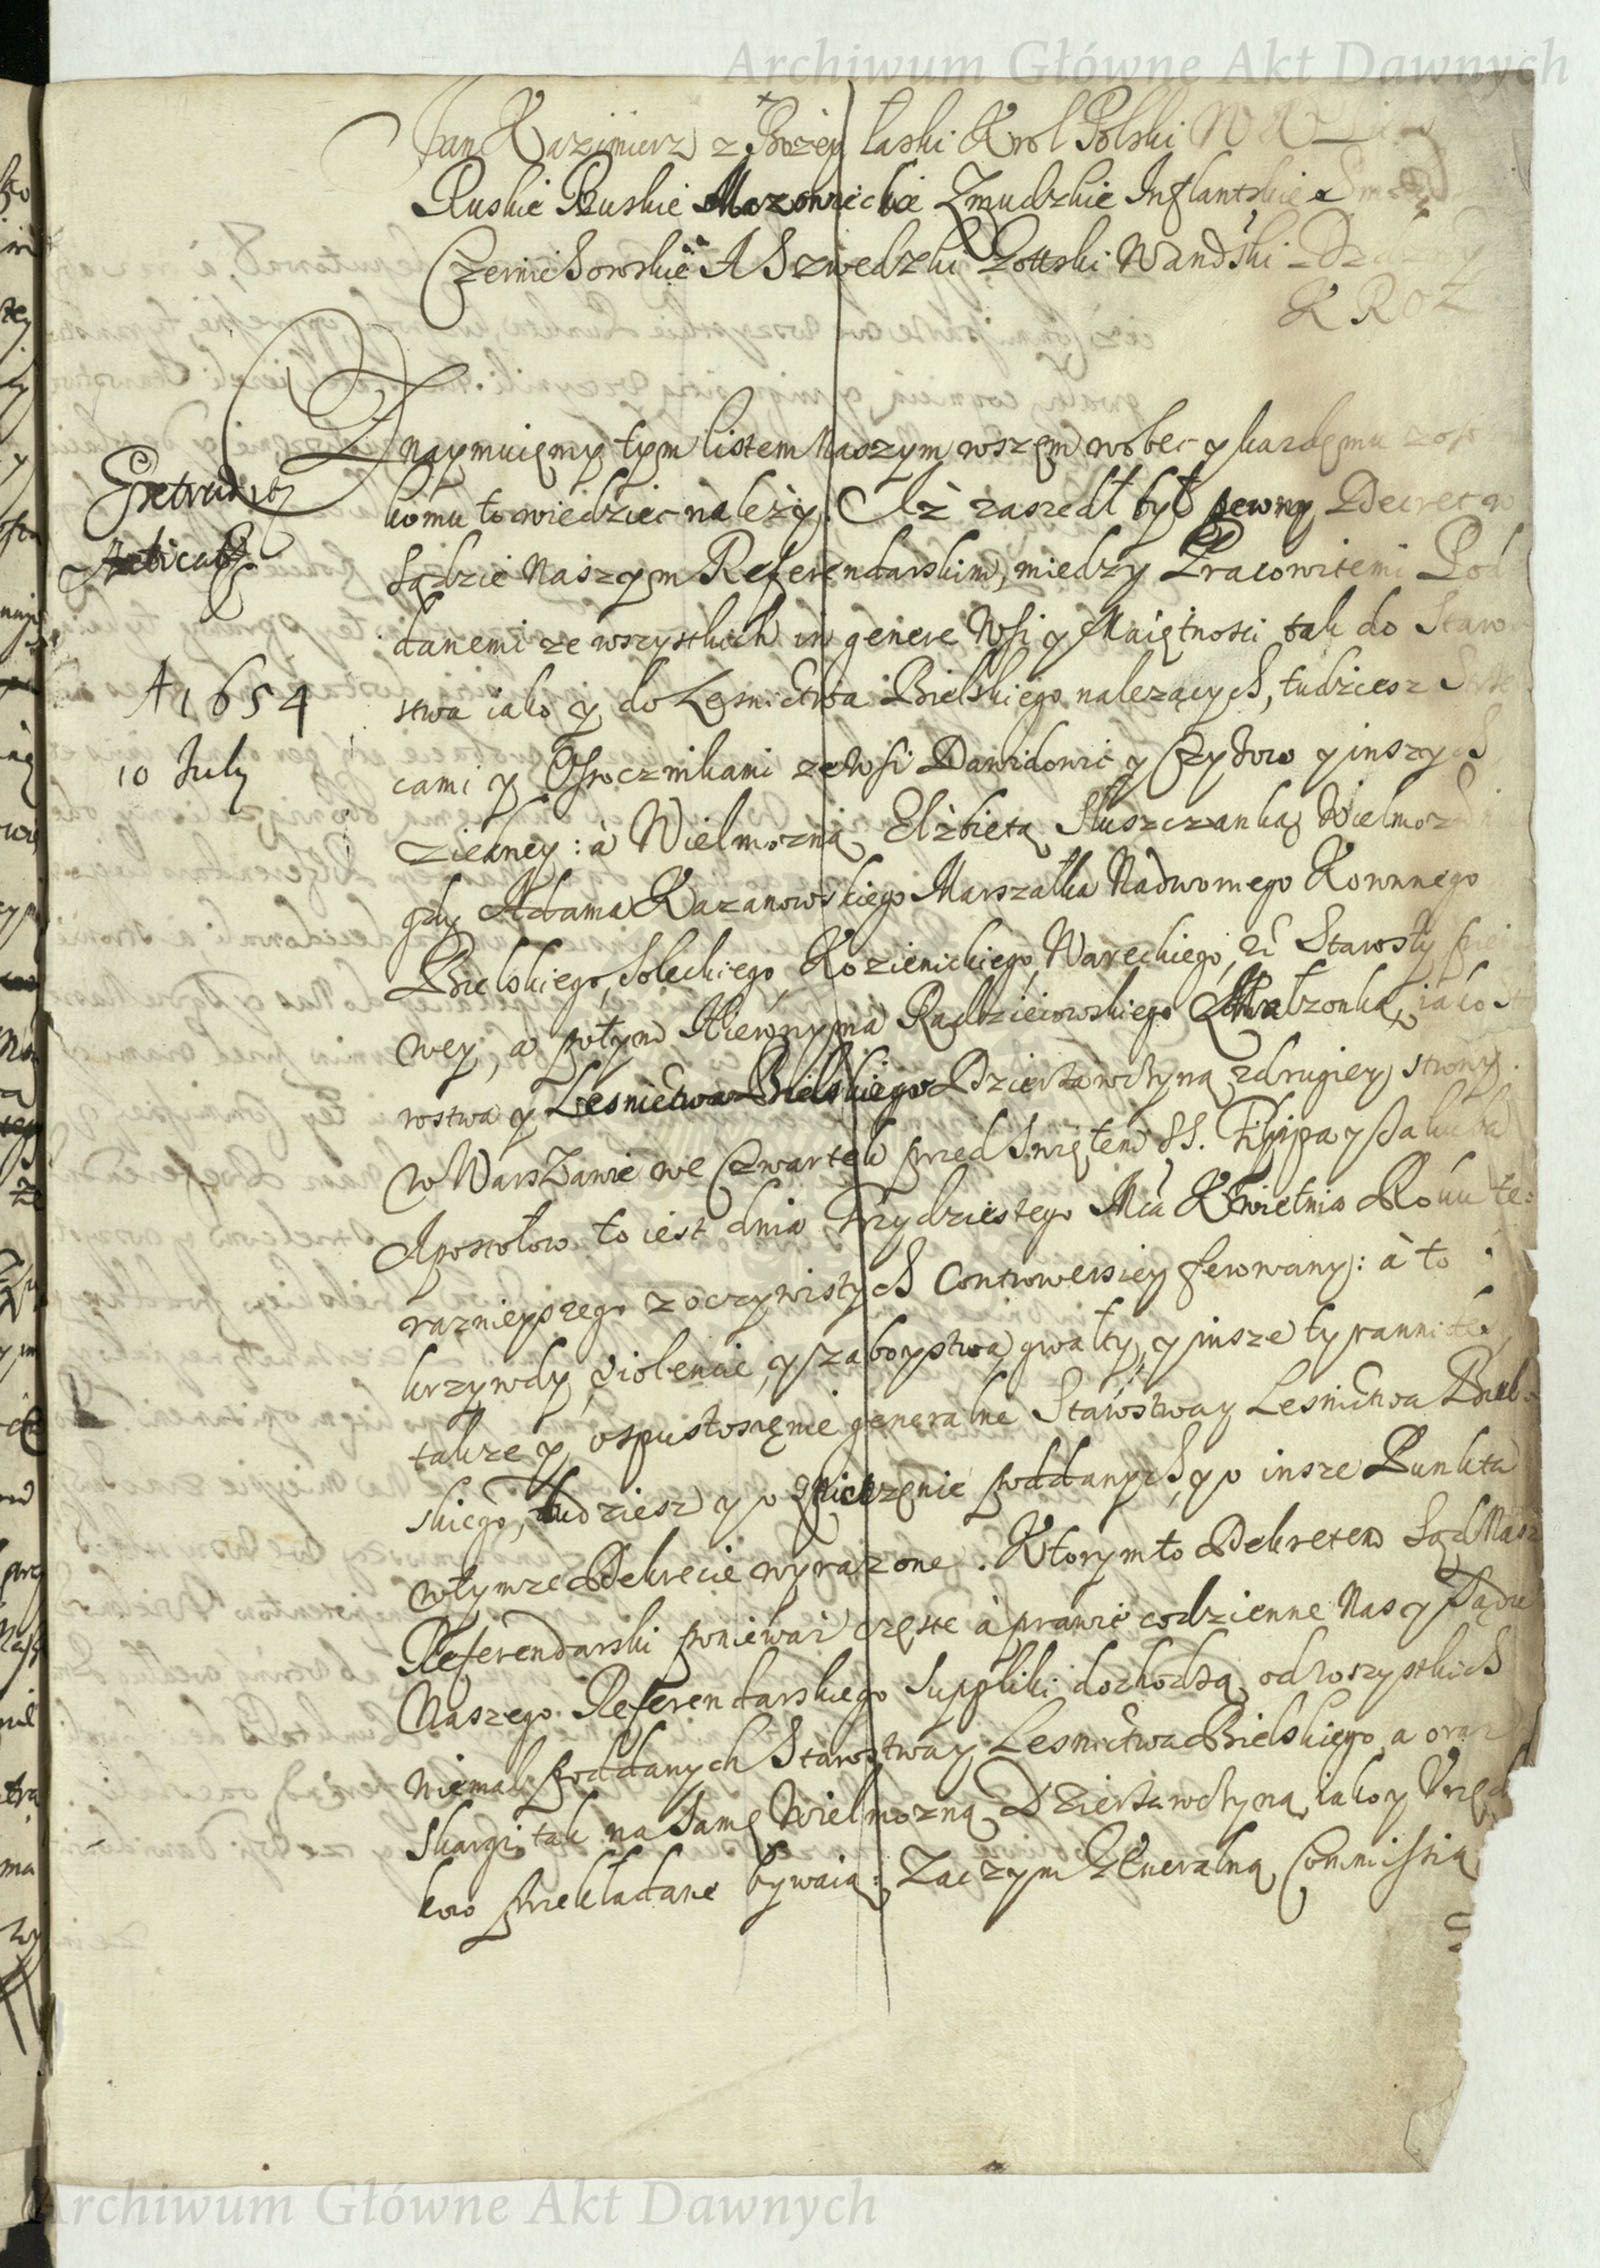 Archiwum Główne Akt Dawnych
Jan Kazimierz z Bożey łaski Krol Polski W X
Ruskie Pruskie Mazowieckie Zmudzkie Inflantskie Smo
Czerniechowskie A Szwedzki Gottski Wandski Dzie
K R O Z
Znaymuięmy tym listem Naszym wszęm wobec y kazdęmu zos
komu to wiedziec nalezy. Iż zaszedł był pewny Decret w
Sądzie Naszym Referendarskim, miedzy Pracowitemi Pod
danemi ze wszystkich in genere Wsi y Maiętnosci tak do Staro
stwa iako y do Lesnictwa Bielskiego nalezących, tudziesz Strze
cami y Osocznikami ze Wsi Dawidowic y Czyżow y inszych
ziedney: à Wielmozną Elżbietą Słuszczanką Wielmozn
gdy Adama Kazanowskiego Marszałka Nadwornego Koronnego
Bielskiego, Soleckiego, Kozienickiego, Wareckiego, Starosty pier
wey, a potym Hieronyma Radzieiowskiego Małzonką, iako Sta
rostwa y Lesnictwa Bielskiego Dzierzawczyną z drugiey strony.
w Warszawie we Czwartek przed Swiętem SS. Filippa y Jakuba
Apostołow to iest dnia Trzydziestego Mca Kwietnia Roku te:
razniejszego z oczywistych Controwersiey ferowany: à to
krzywdy, violencie, y zaboystwa, gwałty, y insze tyrannides
takze y ospustoszęnie generalne Starostwa y Lesnictwa Biel
skiego, tudziesz y o zniszczęnie poddanych, y o insze Punkta
w tymze Dekrecie wyrazone. Ktorym to Dekretem Sąd Nasz
Referendarski poniewaz częste à prawie codzienne Nas y Sądu
Naszego Referendarskiego suppliki dochodzą od wszystkich
niemal poddanych Starostwa y Lesnictwa Bielskiego, a oraz
skargi, tak na Samę Wielmozną Dzierzawczyną, iako y Urzęd
kow przekładane bywaią: Zaczym Generalną Commissią
A 1654
10 July
Archiwum Główne Akt Dawnych